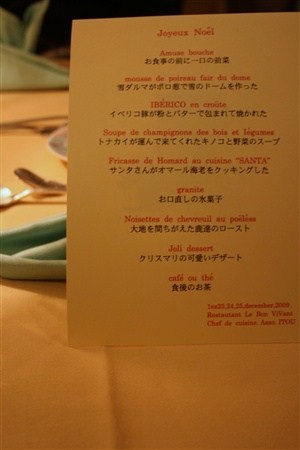 Joyeux Noël
Amuse bouche
お食事の前に一口の前菜
mousse de poireau fair du dome
雪ダルマがポロ葱で雪のドームを作った
IBÉRICO en croûte
イベリコ豚が粉とバターで包まれて焼かれた
Soupe de champignons des bois et légumes
トナカイが運んで来てくれたキノコと野菜のスープ
Fricasse de Homard au cuisine "SANTA"
サンタさんがオマール海老をクッキングした
granite
お口直しの氷菓子
Noisettes de chevreuil au poêlées
大地を間ちがえた鹿達のロースト
Joli dessert
クリスマリの可愛いデザート
café ou thé
食後のお茶
Les23,24,25,december,2009
Restautant Le Bon ViVant
Chef de cuisine Asao. ITOU